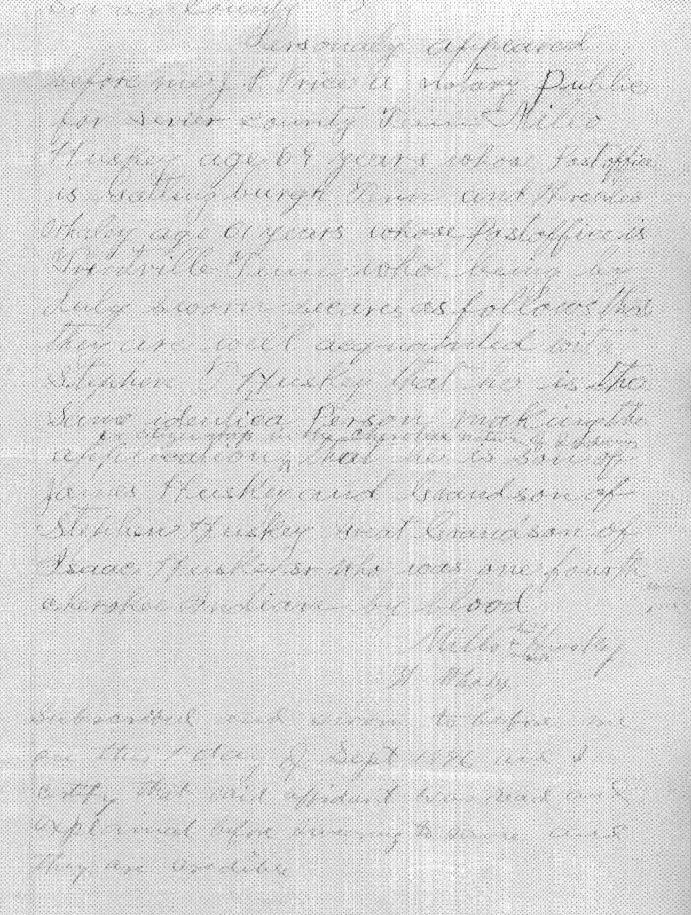 Sevier County
Personaly appeared
before me J P Price a notary Public
for Sevier County Tenn Millo
Huskey age 69 years whose Postoffice
is Gatlingburgh Tenn and Hercules
Whaley age 61 years whose Postoffice is
Tenn who being by
duly sworn sweare as follows that
they are well acquainted with
Stephen T Huskey that he is the
same identica Person making the
for citizenship in the cherokee nation of Indians
application that he is son of
James Huskey and Grandson of
Stephen Huskey Great Grandson of
Isaac Huskey sr who was one fourth
cherokee Indian by blood
Millo Huskey
H Whaley
Subscribed and sworn to before me
on this 1 day of Sept 1896 and I
certify that said affidavit was read and
explained before swearing to same and
they are credible